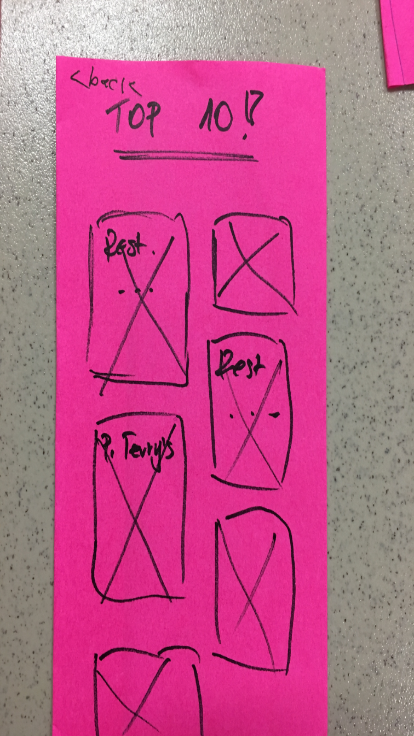 <back
TOP 10!?
Rest.
...
Rest
...
P. Terry's